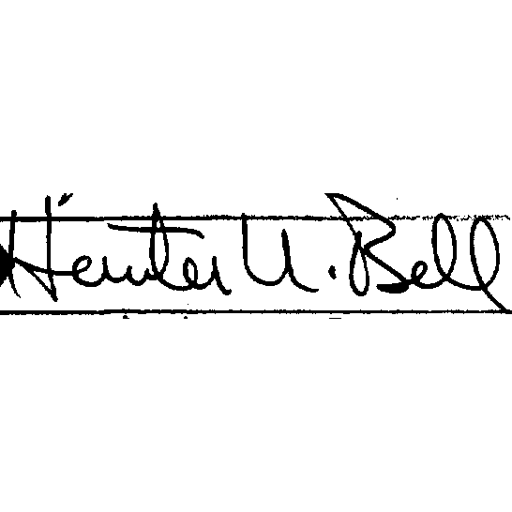 Hunter U. Bell